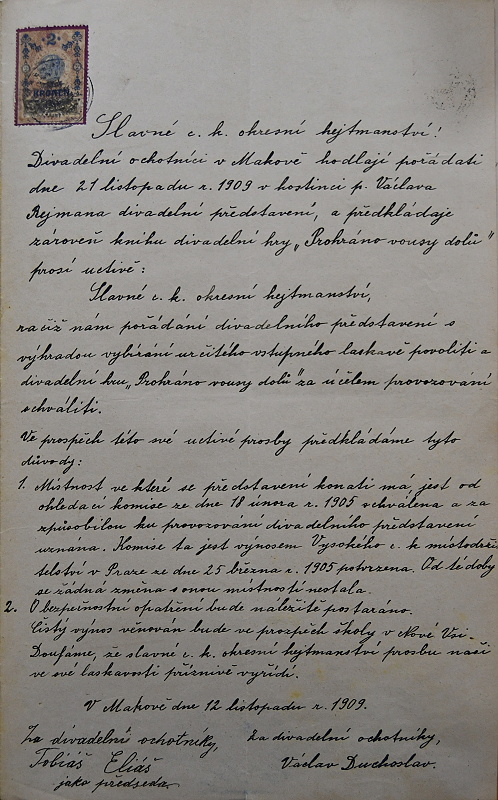 2
KRONEN
Slavné c. k. okresní hejtmanství!
Divadelní ochotníci v Makově hodlají pořádati
dne 21 listopadu r. 1909 v hostinci p. Václava
Rejmana divadelní představení, a předkládaje
zároveň knihu divadelní hry „Prohráno vousy dolů"
prosí uctivě:
Slavné c. k. okresní hejtmanství,
račiž nám pořádání divadelního představení s
výhradou vybírání určitého vstupného laskavě povoliti a
divadelní hru „Prohráno vousy dolů" za účelem provozování
schváliti.
Ve prospěch této své uctivé prosby předkládáme tyto
důvody:
1. Místnost ve které se představení konati má, jest od
ohledací komise ze dne 18 února r. 1905 schválena a za
způsobilou ku provozování divadelního představení
uznána. Komise ta jest výnosem Vysokého c. k. místodrži
telství v Praze ze dne 25 března r. 1905 potvrzena. Od té doby
se žádná změna s onou místností nestala.
2. O bezpečnostní opatření bude náležitě postaráno.
Čistý výnos věnován bude ve prospěch školy v Nové Vsi.
Doufáme, že slavné c. k. okresní hejtmanství prosbu naši
ve své laskavosti příznivě vyřídí.
V Makově dne 12 listopadu r. 1909.
Za divadelní ochotníky,
Tobiáš Eliáš
jako předseda.
Za divadelní ochotníky,
Václav Duchoslav.